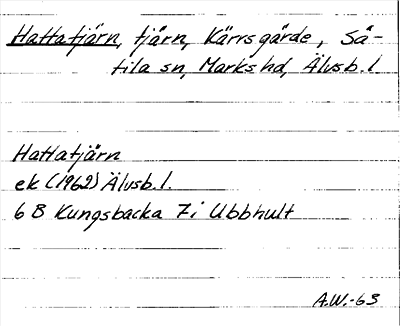 Hattatjärn, tjärn, Kärrsgärde, Sä-
tila sn, Marks hd, Älvsb. l
Hattatjärn
ek (1962) Älvsb. l.
6 B Kungsbacka 7i Ubbhult
A.W.-63